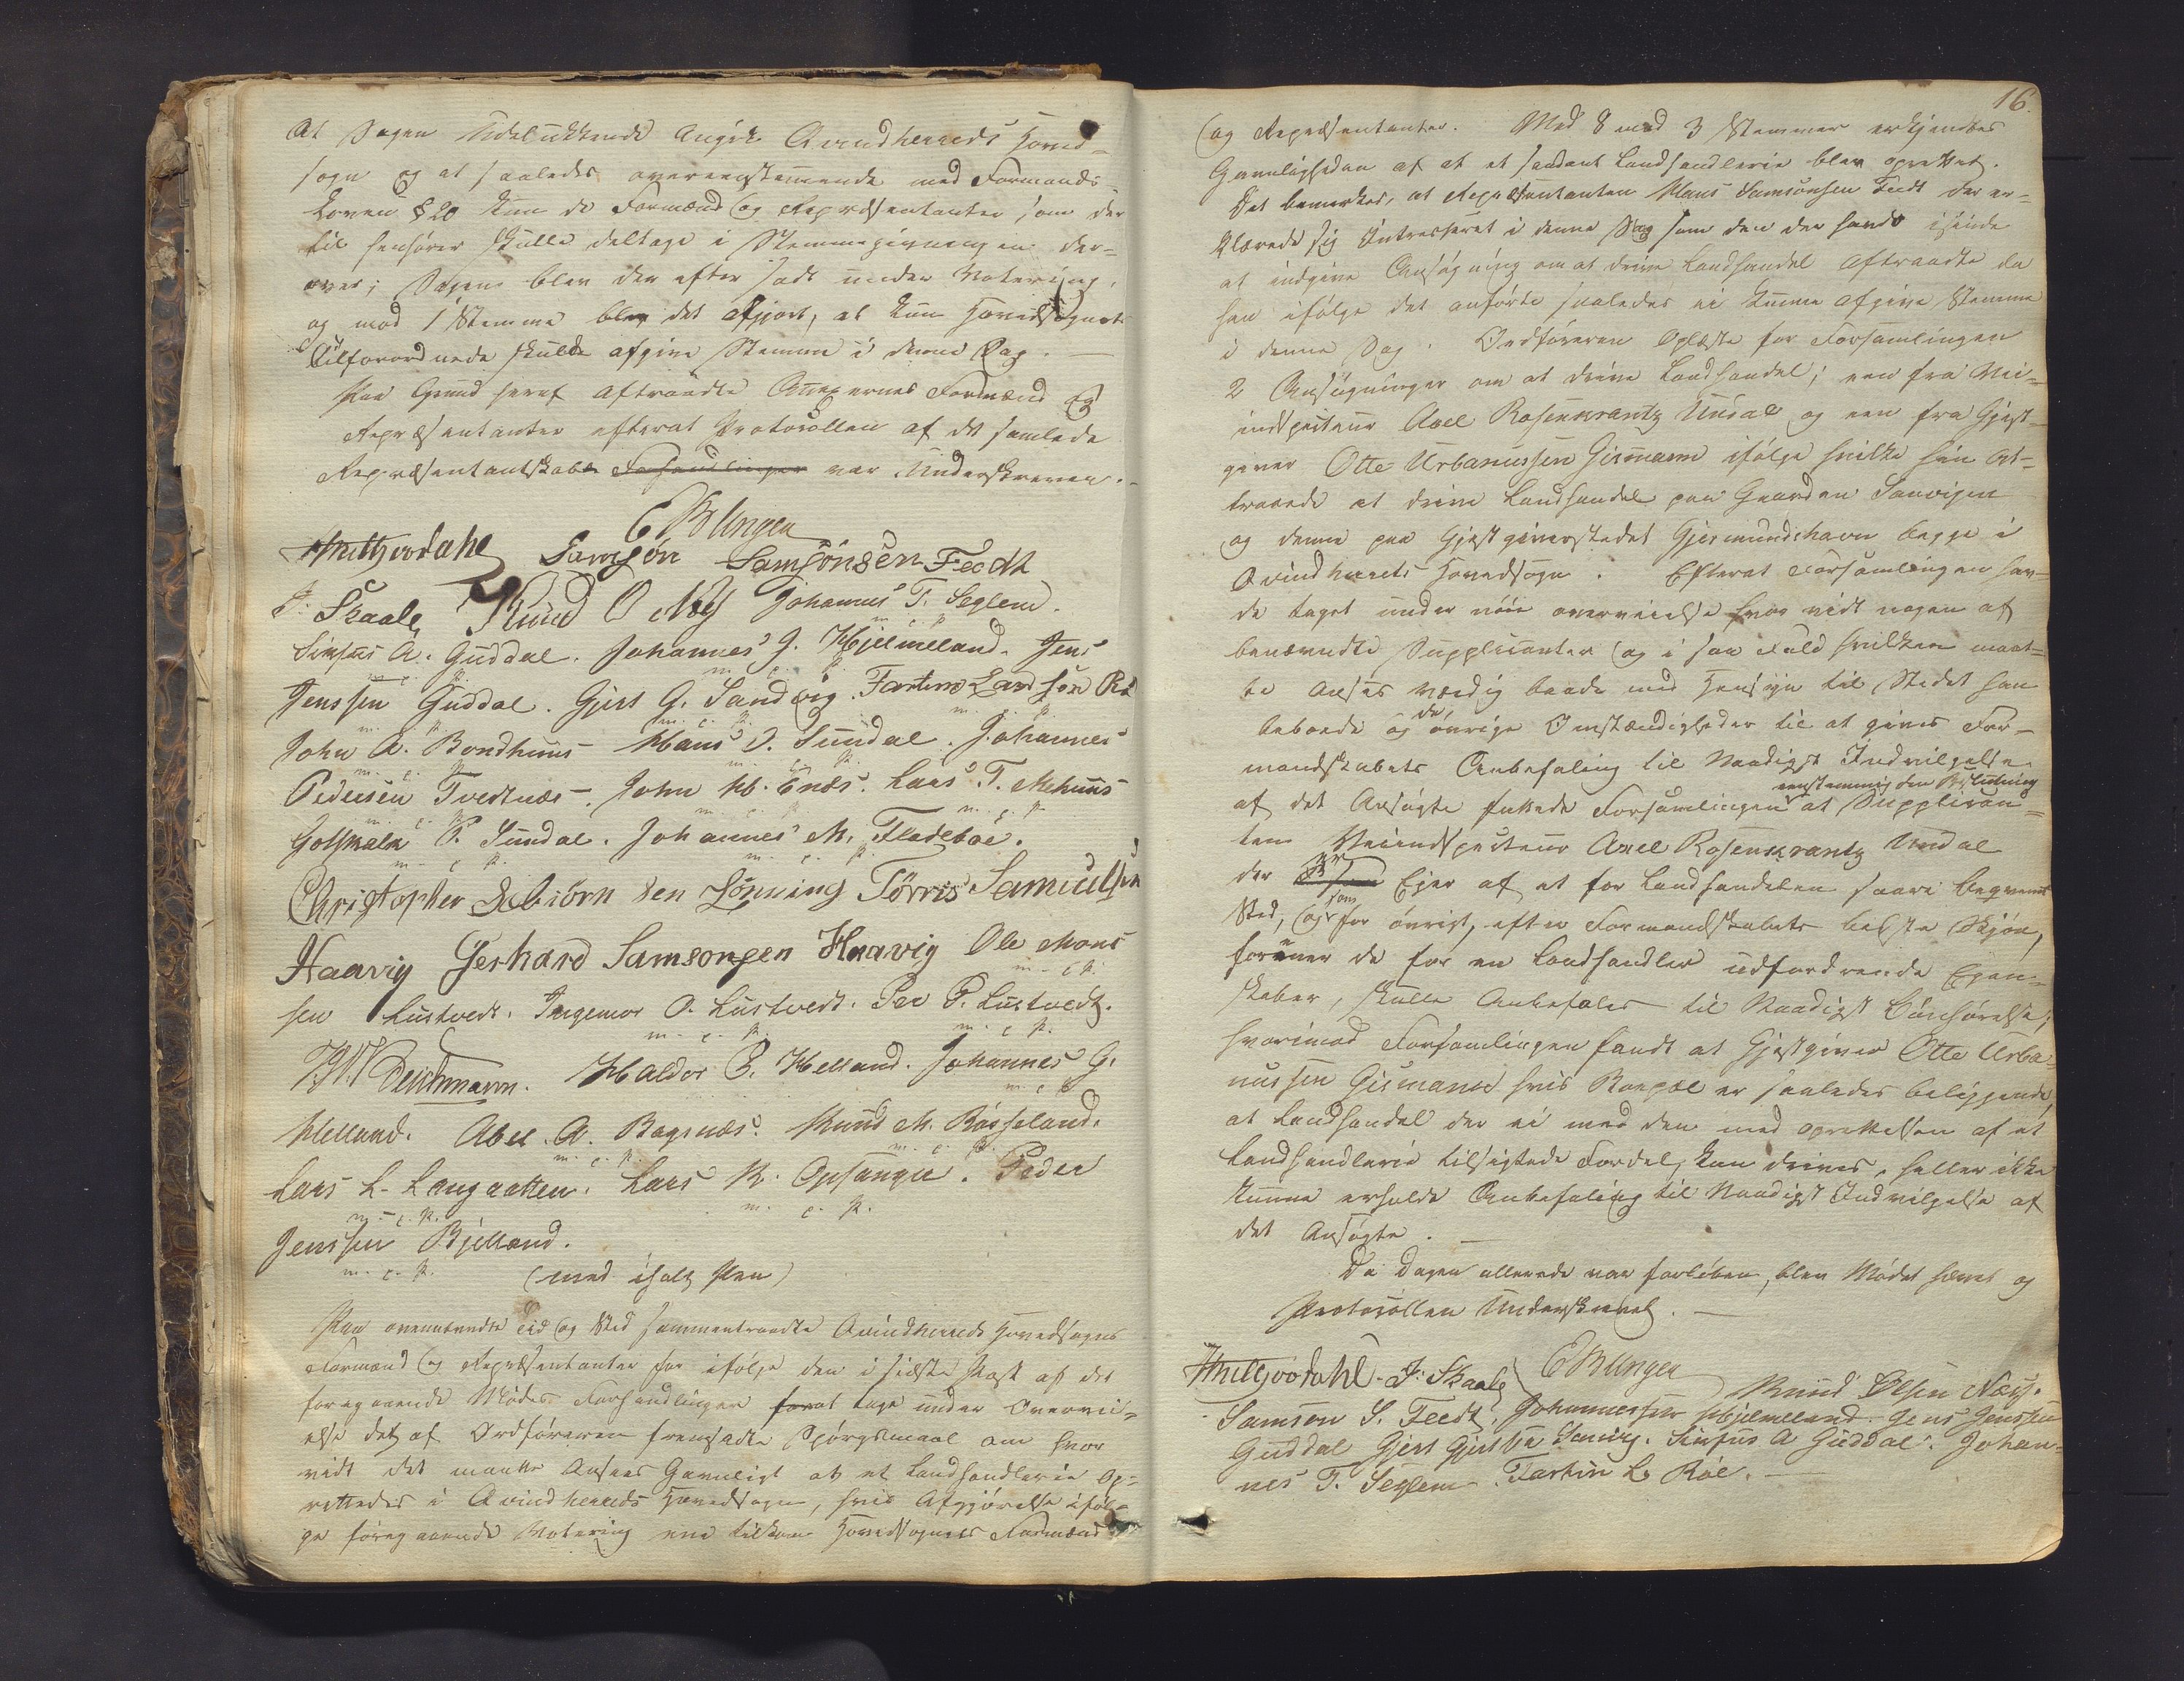 At Sagen Udelukkende Angik Qvindherreds Hoved=
sogn og at saaledes overeenstemmende med Formands-
Loven § 20 kun de Formænd og Repræsentanter som der
til henhører skulle deltage i Stemmegivningen der=
over; Sagen blev derefter sadt under Votering,
og mod 1 Stemme blev det afgjort, at kun Hovedsognets
Tilforordnede skulde afgive Stemme i denne Sag. —
Paa Grund heraf aftraadte Annexernes Formænd og
Repræsentanter efterat Protocollen af det samlede
Repræsentantskabs Forhandlinger var Underskreven. -
E B Unger
Samson Samsonsen Feedt
J: Skaale Knud O Næs Johannes T. Seglem.
m. c. p.
Sinsus A. Guddal. Johannes J. Hjelmeland. Jens
m. c. p. m. c. p.
Jenssen Guddal. Gjert G. Sandvig. Fartein Larssøn Rø
m. c. p. m. c. p. m. c. p.
John A. Bondhuus Hans D. Sundal. Johannes
m. c. p. m. c. p.
Pedersen Tvedtnæs. John H. Enæs. Lars T. Mehuus
m. c. p. m. c. p. m. c. p.
Gotskalk P. Sundal. Johannes M. Fladeboe.
m. c. p. m. c. p.
Christopher Esbiörnsen Lönning Törris Samuelsen
Haavig Gerhard Samsonsen Haavig Ole Mons
m. c. p.
sen Lustvedt. Ingemor O. Lustvedt. Per P. Lustvedt.
m. c. p. m. c. p.
Deichmann. Haldor B. Helland. Johannes G.
m. c. p.
Helland. Abel A. Bagnæs. Knud M. Røsseland.
m. c. p. m. c. p.
Lars L. Langaatten. Lars K. Opsanger. Peder
m. c. p. m. c. p.
Jenssen Bjelland.
m. c. p. (med iholt Pen)
Paa ovennævndte Tid og Sted sammentraadte Qvindherreds Hovedsogns
Formænd og Repræsentanter for ifølge den i sidste Post af det
foregaaende Mødes Forhandlinger forat tage under Overvei=
else det af Ordføreren fremsadte Spørgsmaal om hvor
vidt det maatte Ansees Gavnligt at et Landhandlerie Op=
rettedes i Qvindherreds Hovedsogn, hvis Afgjørelse iføl=
ge foregaaende Votering ene tilkom Hovedsognets Formænd
16.
og Repræsentanter. Med 8 mod 3 Stemmer erkjendtes
Gavnligheden af at et saadant Landhandlerie blev oprettet.
Det bemærkes, at Repræsentanten Hans Samsonsen Feedt der er=
klærede sig Intresseret i denne Sag som den der havde isinde
at indgive Ansøgning om at drive Landhandel aftraadte da
han ifølge det anførte saaledes ei kunne afgive Stemme
i denne Sag. Ordføreren Oplæste for Forsamlingen
2 Ansøgninger om at drive Landhandel; een fra Vei=
inspecteur Axel Rosenkrantz Undal og een fra Gjest=
giver Otte Urbanussen Gismann ifølge hvilke hiin At=
traaede at drive Landhandel paa Gaarden Sanvigen
og denne paa Gjestgiverstedet Gjermundshavn begge i
Qvindherreds Hovedsogn. Efterat Forsamlingen hav=
de taget under nöie overveielse hvorvidt nogen af
benævndte Supplicanter og i saa Fald hvilken maat=
te Ansees værdig baade med Hensyn til Stedet han
beboede og de øvrige Omstændigheder til at gives For=
mandskabets Anbefaling til Naadigst Indvilgelse
af det Ansøgte fattede Forsamlingen eenstemmig den Beslutning at Supplican=
ten Veiinspecteur Axel Rosenkrantz Undal
der er Ejer af et for Landhandelen saare beqvemt
Sted, og som for øvrigt, efter Formandskabets bedste Skjøn,
forener de for en Landhandler udfordrende Egen=
skaber, skulle Anbefales til Naadigst Bönhørelse;
hvorimod Forsamlingen fandt at Gjestgiver Otte Urba=
nussen Gismann hvis Bopæl er saaledes beliggende,
at Landhandel der ei med den med oprettelsen af et
Landhandlerie tilsigtede Fordel, kan drives, heller ikke
kunne erholde Anbefaling til Naadigst Indvilgelse af
det Ansøgte. —
Da Dagen allerede var forløben, blev Mødet hævet og
Protocollen Underskrevet. —
J: Skaale E B Unger Knud Olsen Næss.
Samson S. Feedt. Johannessen Hjelmeland. Jens Jenssen
Guddal Gjert Gjertsen Sanvig. Sinsus A Guddal. Johan=
nes T. Seglem Fartein L. Röe. —